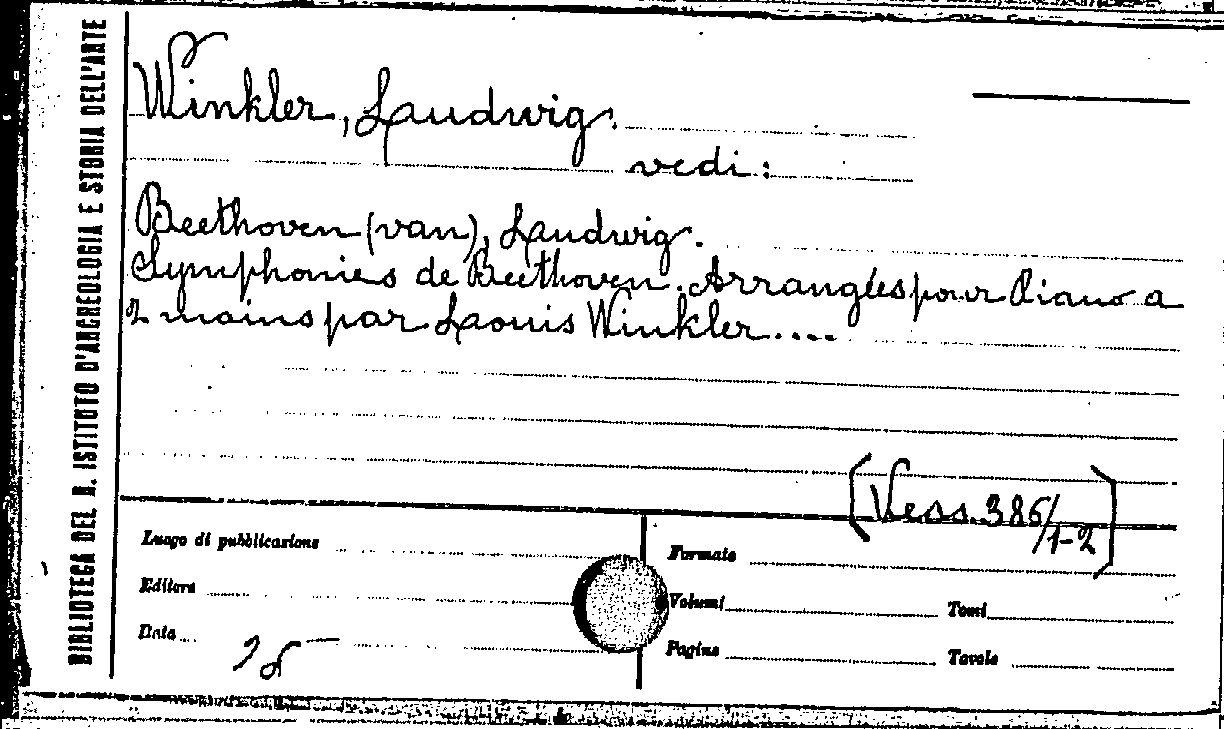 BIBLIOTECA DEL R. ISTITUTO D'ARCHEOLOGIA E STORIA DELL'ARTE
Winkler, Laudwig.
vedi:
Beethoven (van), Laudwig.
Symphonies de Beethoven. Arrangées pour Piano a
2 mains par Louis Winkler....
[Vess. 386/1-2]
Luogo di pubblicazione
Formato
Editore
Volumi
Tomi
Data
Pagine
Tavole